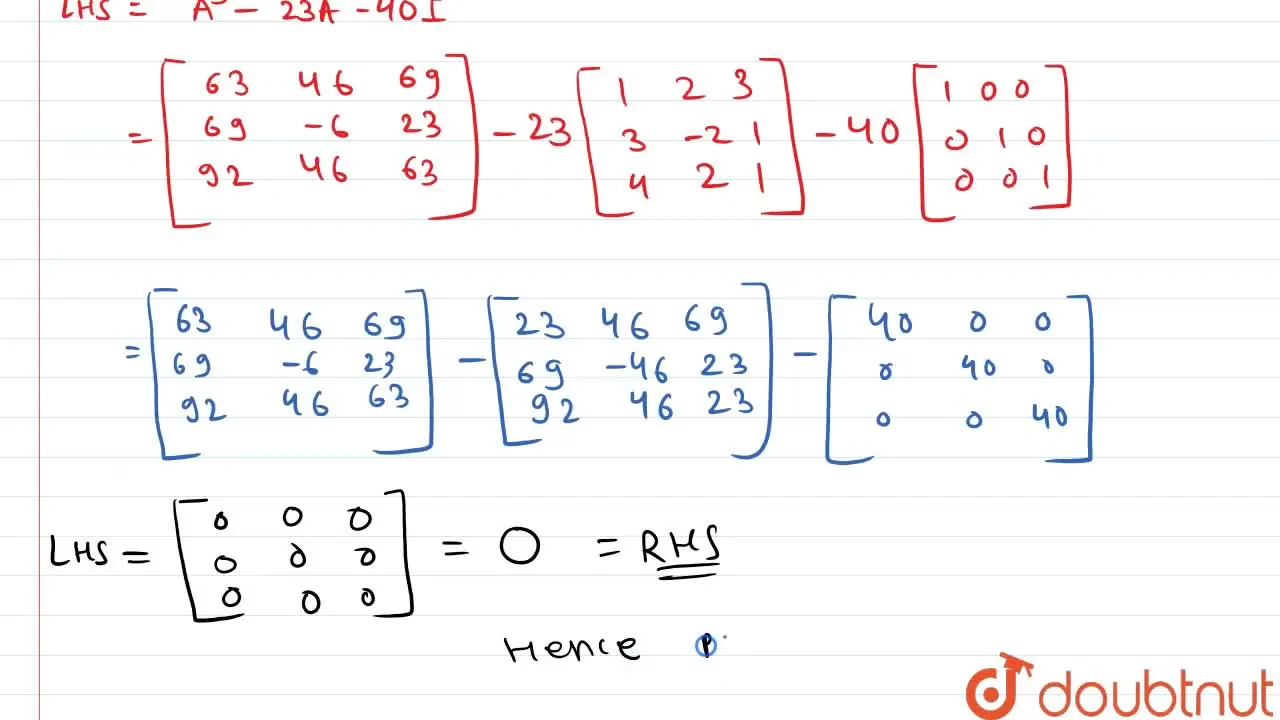 LHS = A³ - 23A - 40I
= [63 46 69
69 -6 23
92 46 63] - 23 [1 2 3
3 -2 1
4 2 1] - 40 [1 0 0
0 1 0
0 0 1]
= [63 46 69
69 -6 23
92 46 63] - [23 46 69
69 -46 23
92 46 23] - [40 0 0
0 40 0
0 0 40]
LHS = [0 0 0
0 0 0
0 0 0] = O = RHS
Hence P
doubtnut